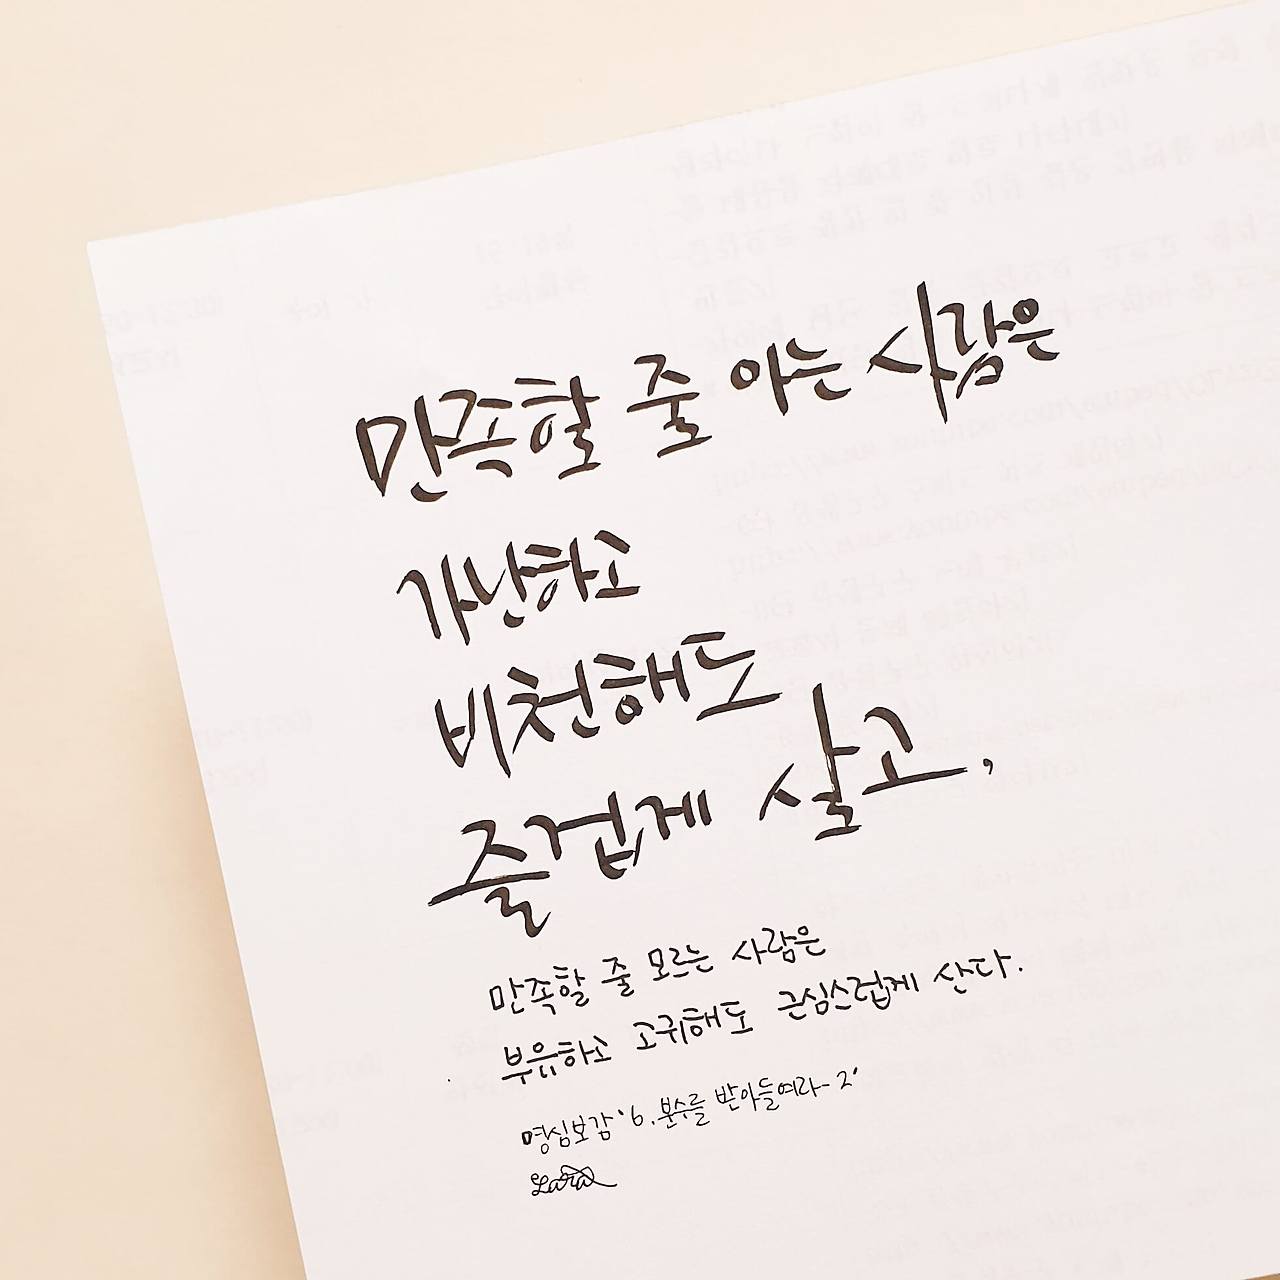 만족할 줄 아는 사람은
가난하고
비천해도
즐겁게 살고,
만족할 줄 모르는 사람은
부유하고 고귀해도 근심스럽게 산다.
명심보감 '6. 분수를 받아들여라-2'